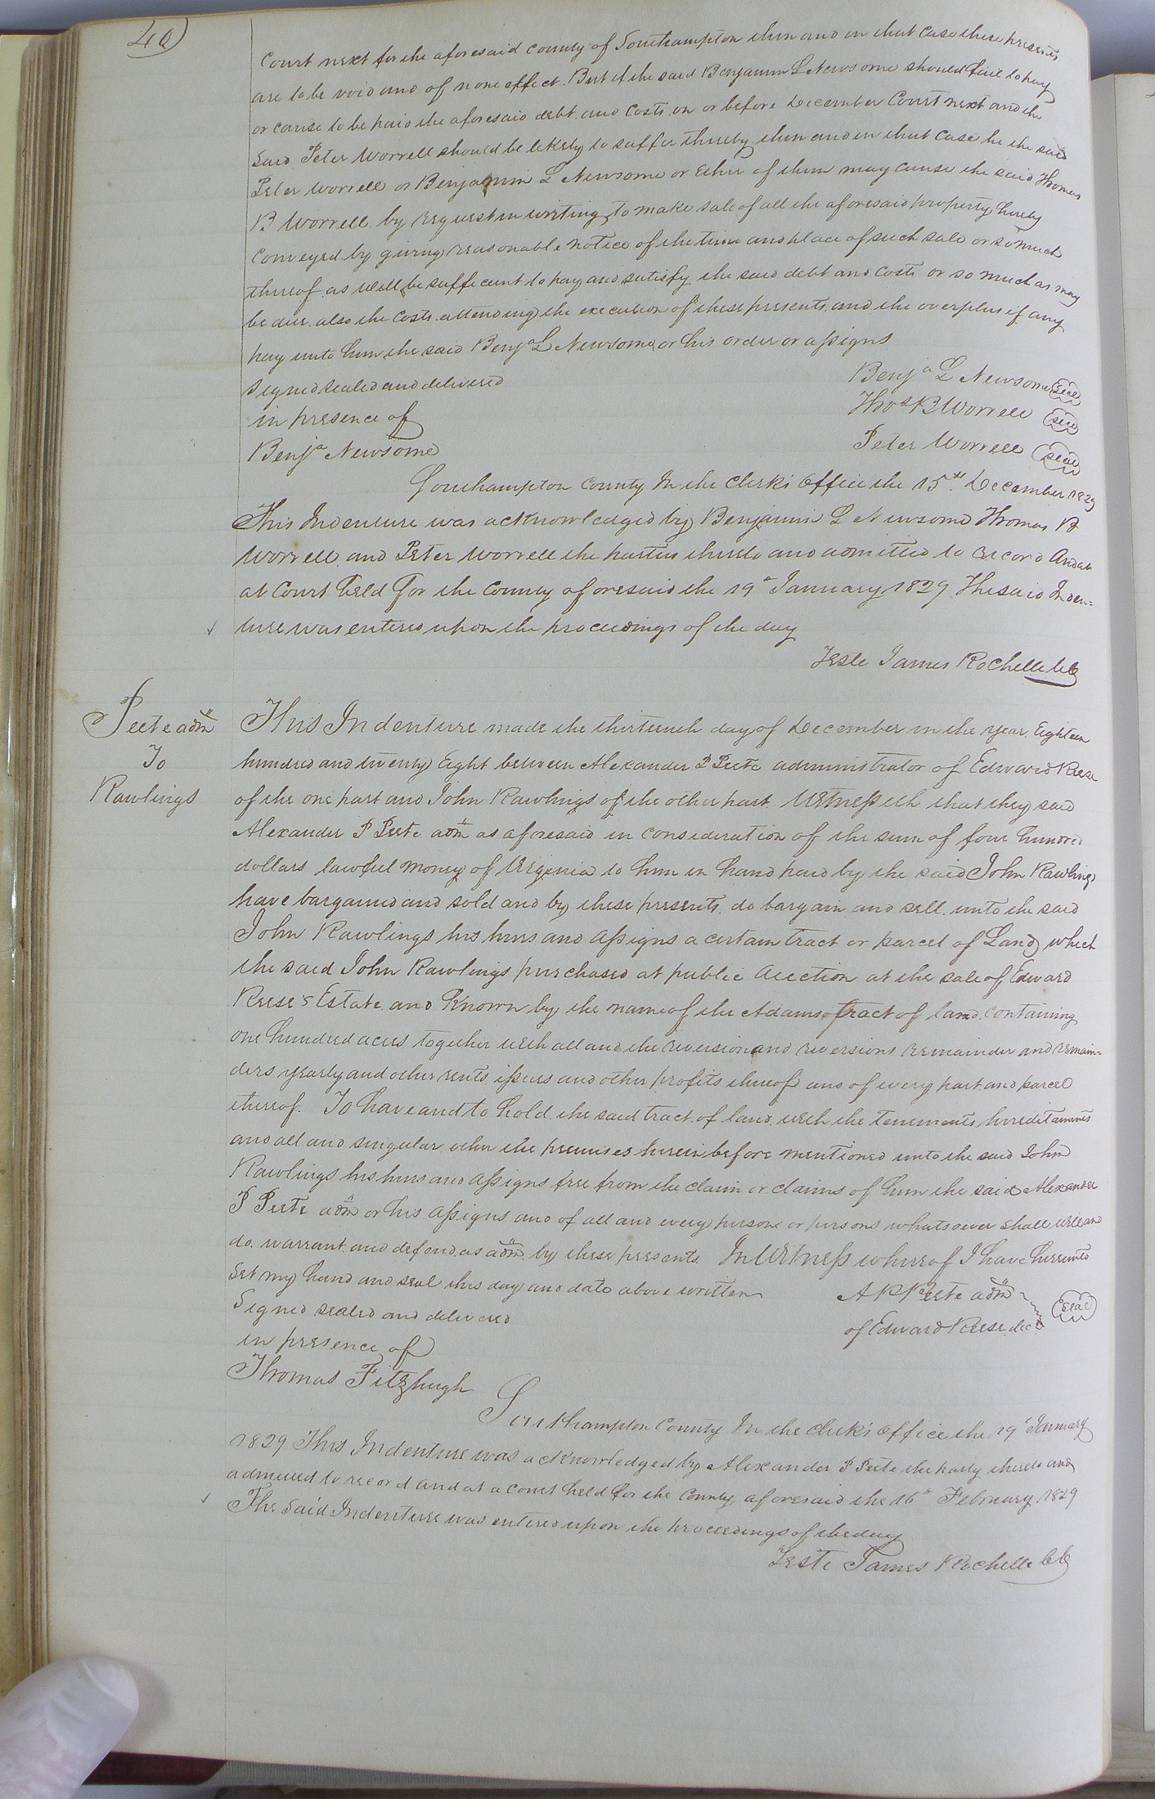 40
Court next for the aforesaid county of Southampton then and in that case these presents
are to be void and of none effect. But if the said Benjamin L Newsome should fail to pay
or cause to be paid the aforesaid debt and costs on or before December Court next and the
said Peter Worrell should be likely to suffer thereby then and in that case he the said
Peter Worrell or Benjamin L Newsome or Either of them may cause the said Thomas
B Worrell by request in writing to make sale of all the aforesaid property hereby
conveyed by giving reasonable notice of the time and place of such sale or so much
thereof as will be sufficient to pay and satisfy the said debt and costs or so much as may
be due also the costs attending the execution of these presents and the overplus if any
pay unto him the said Benja L Newsome or his order or assigns
Signed sealed and delivered
in presence of
Benja Newsome
Benja L Newsome seal
Thos B Worrell seal
Peter Worrell seal
Southampton County In the Clerk's office the 15th December 1829
This Indenture was acknowledged by Benjamin L Newsome Thomas B
Worrell and Peter Worrell the parties thereto and admitted to record And at
at Court held for the County aforesaid the 19th January 1829 The said Inden=
ture was entered upon the proceedings of the day
Teste James Rochelle CC
Peete adm
To
Rawlings
This Indenture made the thirteenth day of December in the year Eighteen
hundred and twenty Eight between Alexander P Peete administrator of Edward Reese
of the one part and John Rawlings of the other part. Witnesseth that they said
Alexander P Peete adm as aforesaid in consideration of the sum of four hundred
dollars lawful money of Virginia to him in hand paid by the said John Rawlings
have bargained and sold and by these presents do bargain and sell unto the said
John Rawlings his heirs and assigns a certain tract or parcel of Land which
the said John Rawlings purchased at public Auction at the sale of Edward
Reese's Estate and Known by the name of the Adams tract of land containing
one hundred acres together with all and the reversion and reversions remainder and remain=
ders yearly and other rents issues and other profits thereof and of every part and parcel
thereof. To have and to hold the said tract of land with the tenements hereditaments
and all and singular other the premises herein before mentioned unto the said John
Rawlings his heirs and assigns free from the claim or claims of him the said Alexander
P Peete adm or his assigns and of all and every person or persons whatsoever shall will and
do warrant and defend as adm by these presents In Witness whereof I have hereunto
Set my hand and seal this day and date above written
Signed sealed and delivered
in presence of
Thomas Fitzhugh
A P Peete adm
of Edward Reese decd
Seal
Southampton County In the Clerk's office the 19th January
1829 This Indenture was acknowledged by Alexander P Peete the party thereto and
admitted to record and at a Court held for the County aforesaid the 16th February 1829
The Said Indenture was entered upon the proceedings of the day
Teste James Rochelle CC